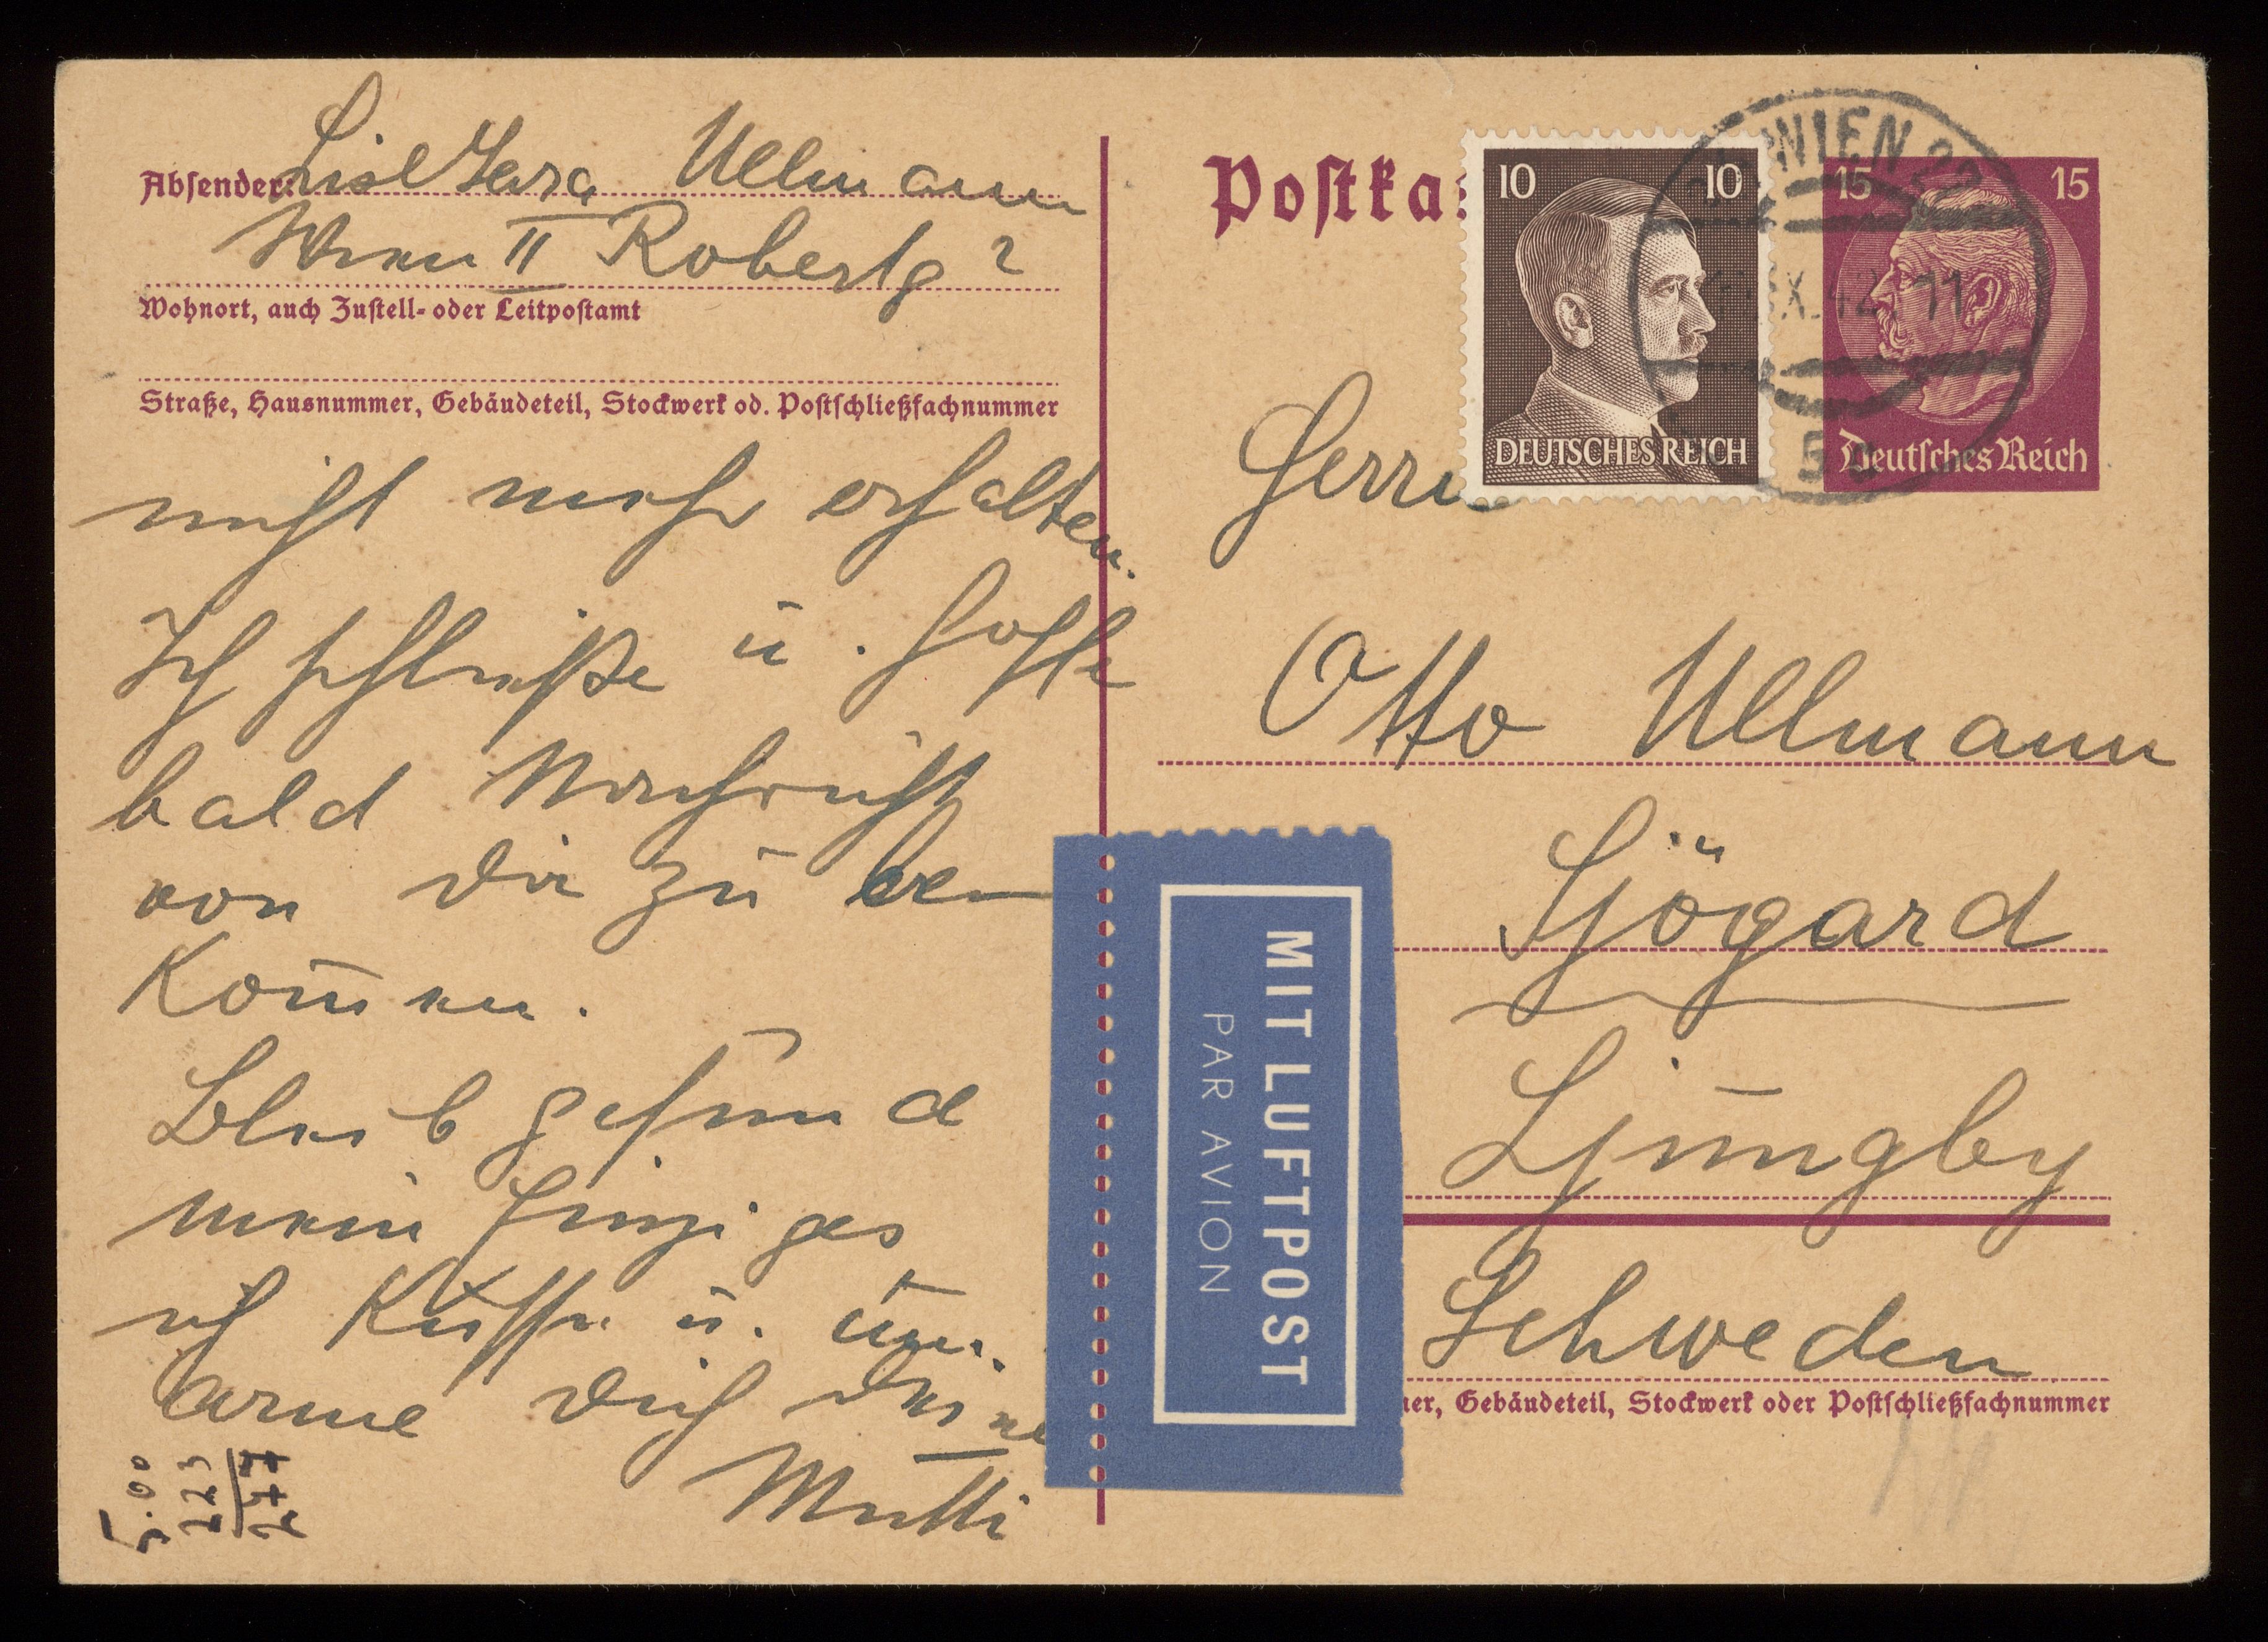 Absender: Lisl Sara Ullmann
Wien II Robertg 2
Wohnort, auch Zustell- oder Leitpostamt
Straße, Hausnummer, Gebäudeteil, Stockwerk od. Postschließfachnummer
nicht mehr erhalten.
Ich schließe u. hoffe
bald Nachricht
von Dir zu be
kommen.
Bleib gesund
mein Einziges
ich küsse u. um
arme Dich Deine
Mutti
5.00
223
277
Postka
10 10
DEUTSCHES REICH
WIEN 27
X.42. 11
15 15
Deutsches Reich
Herrn
Otto Ullmann
Sjögard
Ljungby
Schweden
MIT LUFTPOST
PAR AVION
er, Gebäudeteil, Stockwerk oder Postschließfachnummer